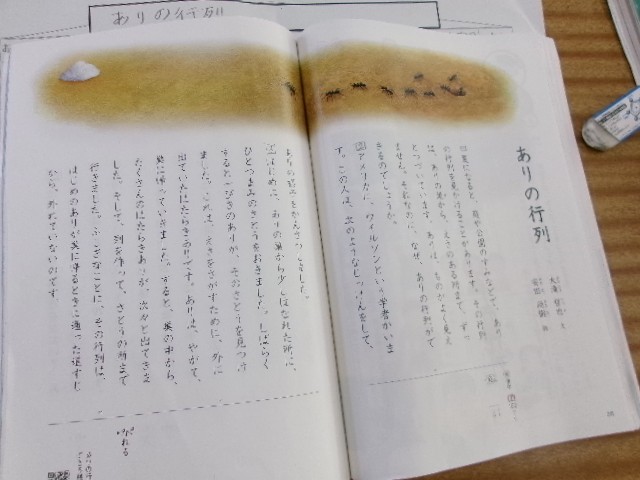 ありの行列
ありの行列
夏になると、庭や公園のすみなどで、あり
の行列を見かけることがあります。その行列
は、ありの巣から、えさのある所まで、ずっ
とつづいています。ありは、ものがよく見え
ません。それなのに、なぜ、ありの行列がで
きるのでしょうか。
アメリカに、ウイルソンという学者がいま
す。この人は、次のようなじっけんをして、
ありの様子をかんさつしました。
はじめに、ありの巣から少しはなれた所に、
ひとつまみのさとうをおきました。しばらく
すると、一ぴきのありが、そのさとうを見つけ
ました。これは、えさをさがすために、外に
出ていたはたらきありです。ありは、やがて、
巣に帰っていきました。すると、巣の中から、
たくさんのはたらきありが、次々と出てきま
した。そして、列を作って、さとうの所まで
行きました。ふしぎなことに、その行列は、
はじめのありが巣に帰るときに通った道すじ
から、外れていないのです。
外れる